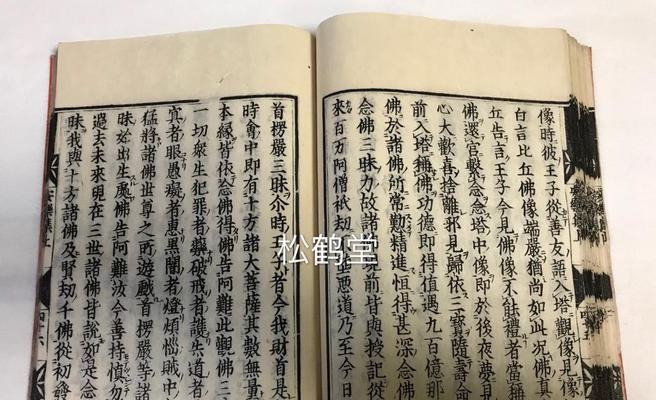 像時彼王子從善友語入塔觀像見像
白言比丘佛像端嚴猶尚如此況佛真
丘告言王子今見佛像不能禮者當稱
佛還宮繫念念塔中像即於後夜夢見
心大歡喜捨離邪見歸依三寶隨壽命
前入塔稱佛功德即得值遇九百億那
佛於諸佛所常勤精進恒得甚深念佛
念佛三昧力故諸佛現前皆與授記從
來百万阿僧祇劫悪道乃至今日
首楞嚴三昧尒時王子者今我財首是
時會中即有十方諸大菩薩其數無量
本緣皆依念佛得佛告阿難此觀佛三
一切衆生犯罪者藥破戒者護失道者
冥者眼愚癡者慧黒闇者燈煩惱賊中
猛將諸佛世尊之所遊戯首楞嚴等諸
昧始出生處佛告阿難汝今善持慎勿
過去未來現在三世諸佛皆説如是念
昧我與十方諸佛及賢劫千佛從初發
安樂集上
四十六
松鹤堂